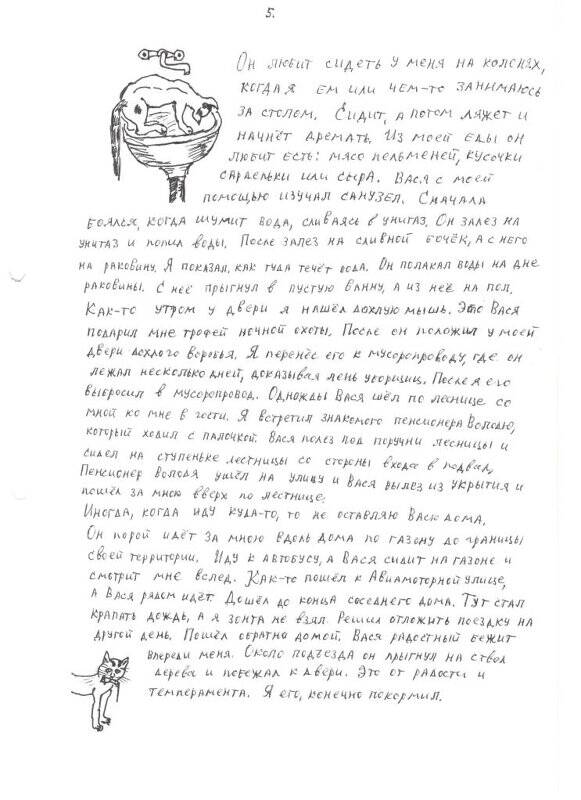 5.
Он любит сидеть у меня на коленях,
когда я ем или чем-то занимаюсь
за столом. Сидит, а потом ляжет и
начнёт дремать. Из моей еды он
любит есть: мясо пельменей, кусочки
сардельки или сыра. Вася с моей
помощью изучал санузел. Сначала
боялся, когда шумит вода, сливаясь в унитаз. Он залез на
унитаз и попил воды. После залез на сливной бочёк, а с него
на раковину. Я показал, как туда течёт вода. Он полакал воды на дне
раковины. С неё прыгнул в пустую ванну, а из неё на пол.
Как-то утром у двери я нашёл дохлую мышь. Это Вася
подарил мне трофей ночной охоты. После он положил у моей
двери дохлого воробья. Я перенёс его к мусоропроводу, где он
лежал несколько дней, доказывая лень уборщиц. После я его
выбросил в мусоропровод. Однажды Вася шёл по леснице со
мной ко мне в гости. Я встретил знакомого пенсионера Володю,
который ходил с палочкой. Вася полез под поручни лесницы и
сидел на ступеньке лестницы со стороны входа в подвал.
Пенсионер Володя ушёл на улицу и Вася вылез из укрытия и
пошёл за мною вверх по лестнице.
Иногда, когда иду куда-то, то не оставляю Васю дома.
Он порой идёт за мною вдоль дома по газону до границы
своей территории. Иду к автобусу, а Вася сидит на газоне и
смотрит мне вслед. Как-то пошёл к Авиамоторной улице,
а Вася рядом идёт. Дошёл до конца соседнего дома. Тут стал
крапать дождь, а я зонта не взял. Решил отложить поездку на
другой день. Пошёл обратно домой. Вася радостный бежит
впереди меня. Около подъезда он прыгнул на ствол
дерева и побежал к двери. Это от радости и
темперамента. Я его, конечно покормил.